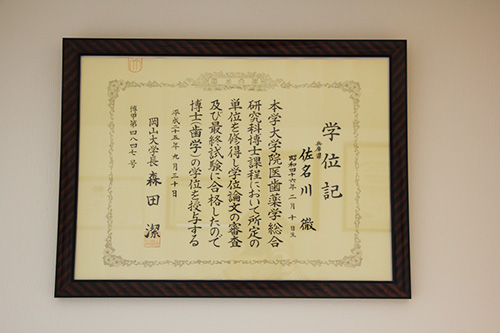 学位記
兵庫県
佐名川 徹
昭和四十六年二月十日生
本学大学院医歯薬学総合
研究科博士課程において所定の
単位を修得し学位論文の審査
及び最終試験に合格したので
博士(歯学)の学位を授与する
平成二十五年九月三十日
岡山大学長 森田 潔
博甲第四八四七号